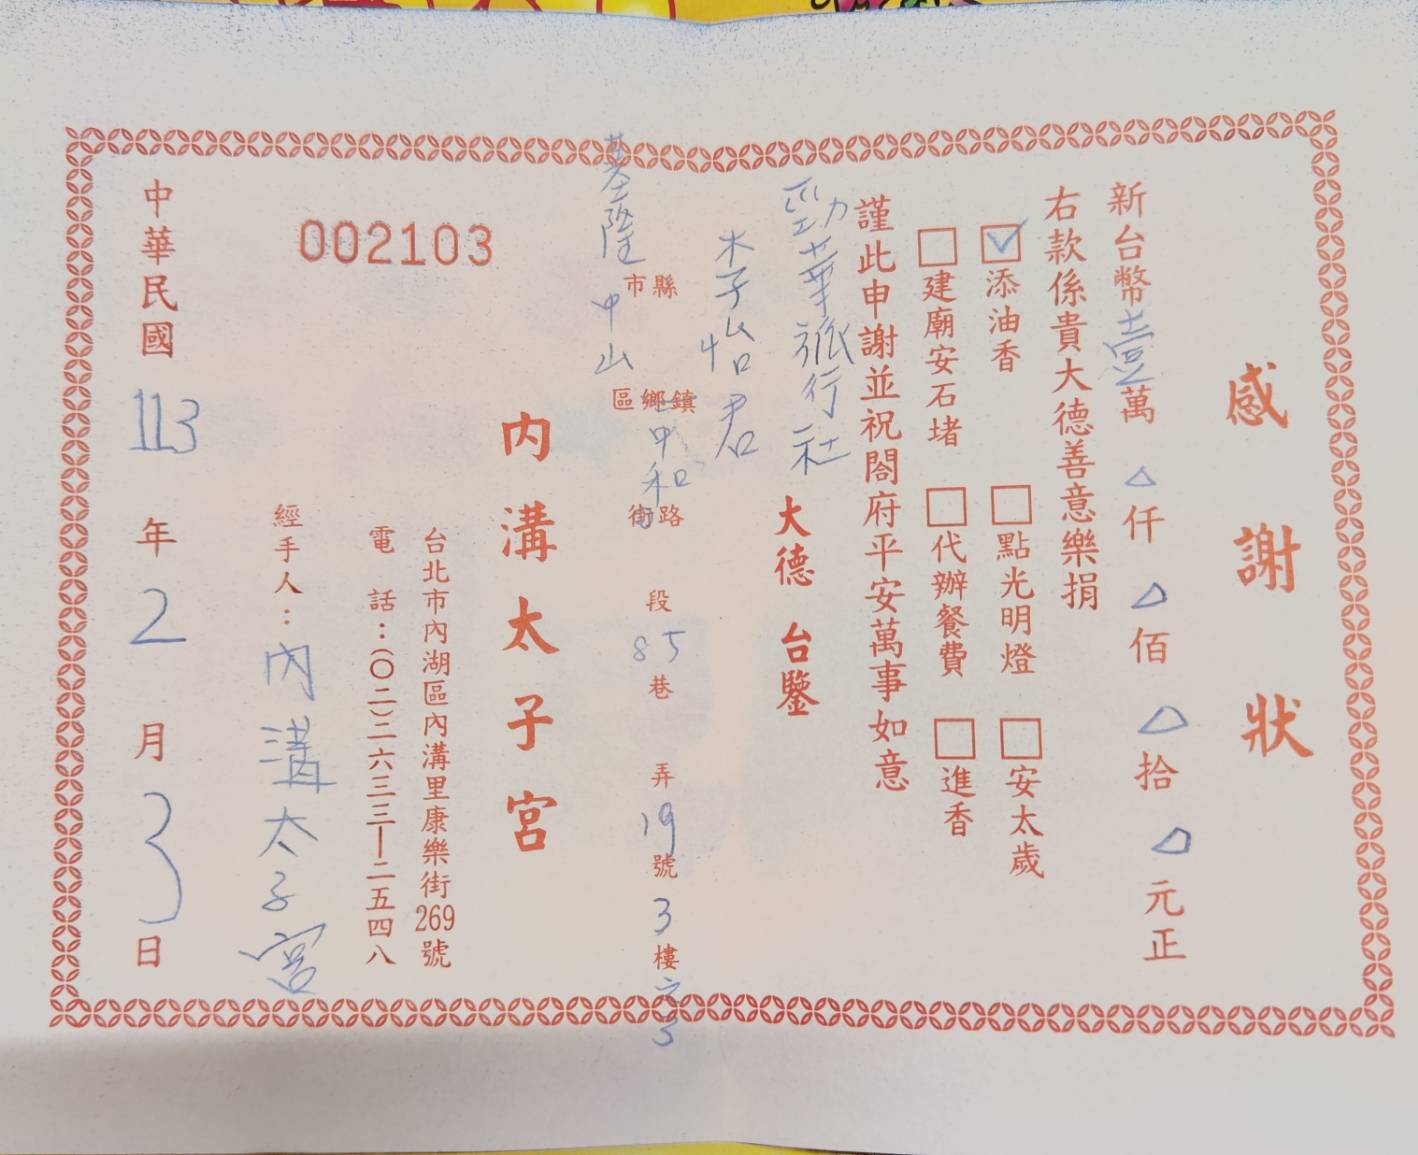 感謝狀
新台幣壹萬△仟△佰△拾△元正
右款係貴大德善意樂捐
☑添油香 □點光明燈 □安太歲
□建廟安石堵 □代辦餐費 □進香
謹此申謝並祝閤府平安萬事如意
勁華旅行社
李怡君
大德 台鑒
基隆縣市中山鎮鄉區中和路街 段85巷 弄19號3樓之3
內溝太子宮
002103
台北市內湖區內溝里康樂街269號
電話：(〇二)二六三三—二五四八
經手人：內溝太子宮
中華民國113年2月3日